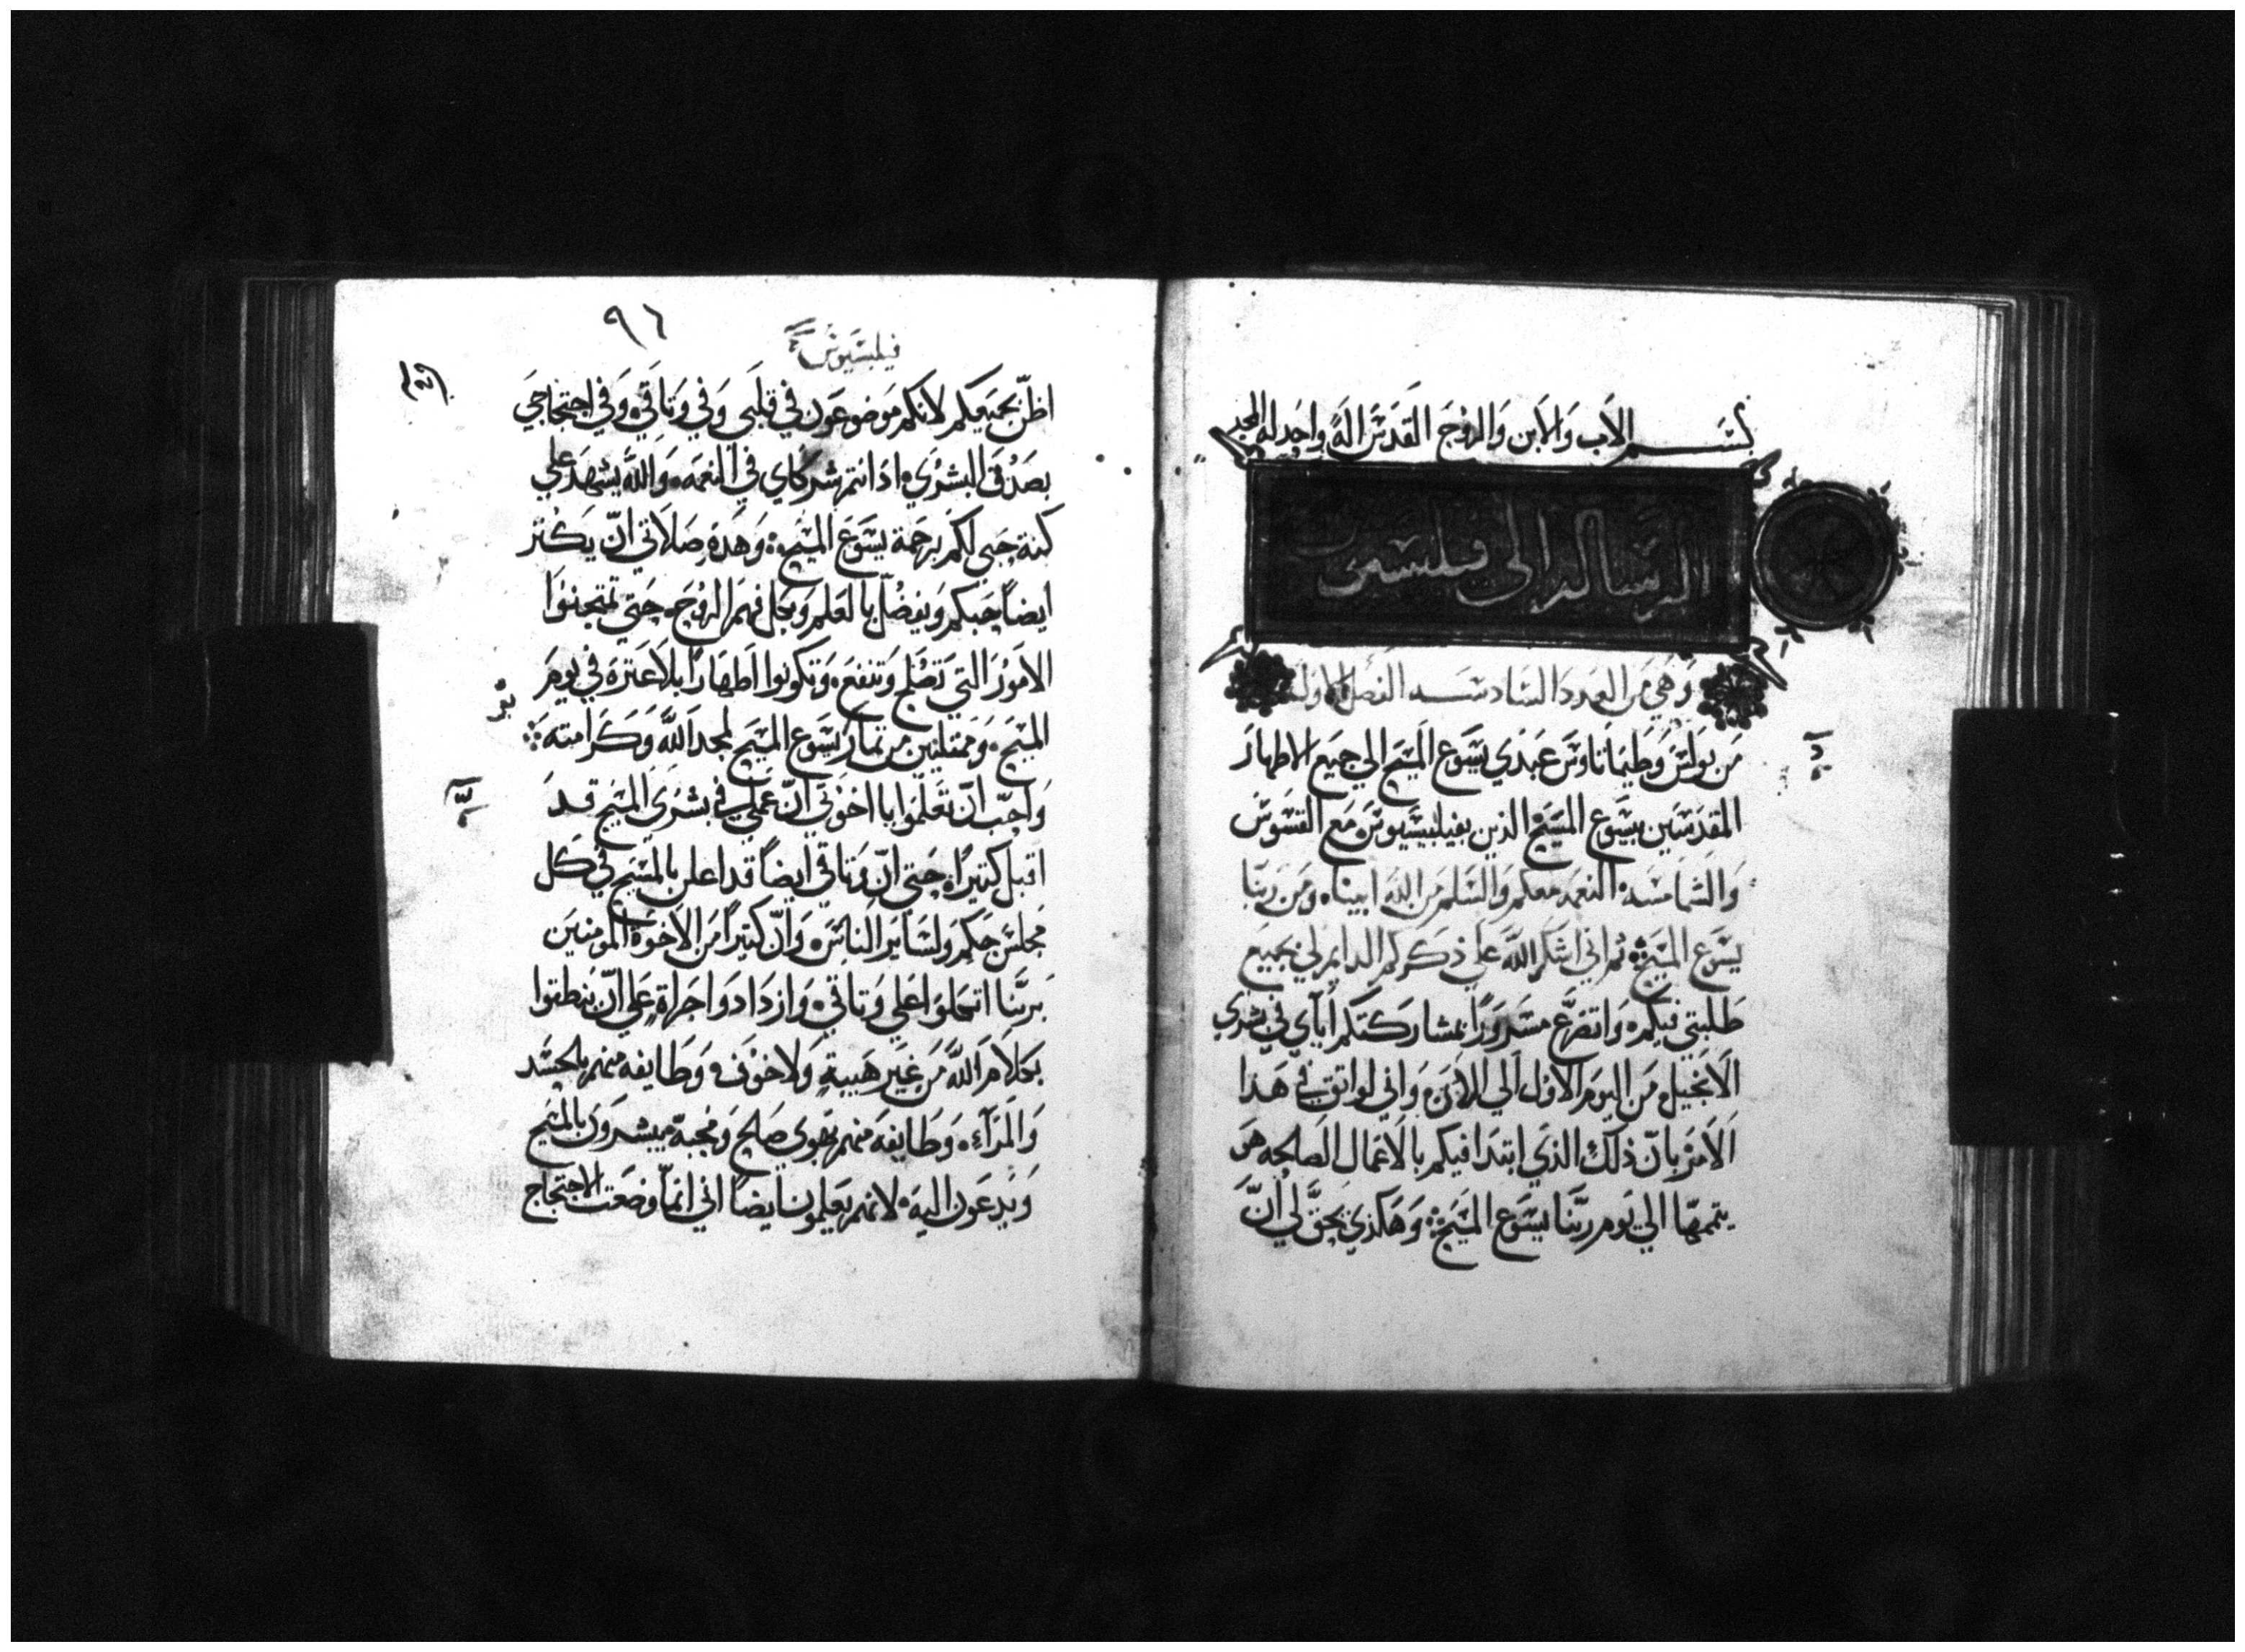 بسم الاب والابن والروح القدس اله واحد له المجد
الرسالة الى فيلبسيوس
وهي من العدد السادسه الفصل الاول
من بولس وطيماتاوس عبدي يسوع المسيح الي جميع الاطهار
المقدسين بيسوع المسيح الذين بفيلبيسيوس مع القسوس
والشمامسه النعمه معكم والسلم من الله ابينا ومن ربنا
يسوع المسيح ثم اني اشكر الله علي ذكركم الدايم لي بجميع
طلبتي فيكم واتضرع مسرورا بمشاركتكم اياي في بشري
الانجيل من اليوم الاول الي الان واني لواثق في هذا
الامر بان ذلك الذي ابتدا فيكم بالاعمال الصلحه هو
يتممها الي يوم ربنا يسوع المسيح وهكذي يحق لي ان
٩٦
فيلبسيوس
اظن بجميعكم لانكم موضوعون في قلبي وفي وتاقي وفي احتجاجي
بصدق البشري اذ انتم شركاي في النعمه والله يشهد علي
كنه حبي لكم برحمة يسوع المسيح وهذه صلاتي ان يكتر
ايضا حبكم ويفضل بالعلم وبكل فهم الروح حتي تمتحنوا
الامور التي تصلح وتنفع وتكونوا اطهارا بلا عترة في يوم
المسيح وممتليين من تمار يسوع المسيح لمجد الله وكرامته
واحب ان تعلموا يا اخوتي ان عملي في بشرى المسيح قد
اقبل كتيرا حتي ان وتاقي ايضا قد اعلن بالمسيح في كل
مجلس حكم ولساير الناس وان كتيرا من الاخوة المومنين
بربنا اتكلوا علي وتاقي وازدادوا جراة علي ان ينطقوا
بكلام الله من غير هيبة ولا خوف وطايفه منهم بالحسد
والمرآء وطايفه منهم بهوي صلح ومحبة يبشرون بالمسيح
ويدعون اليه لانهم يعلمون ايضا اني انما وضعت للاحتجاج